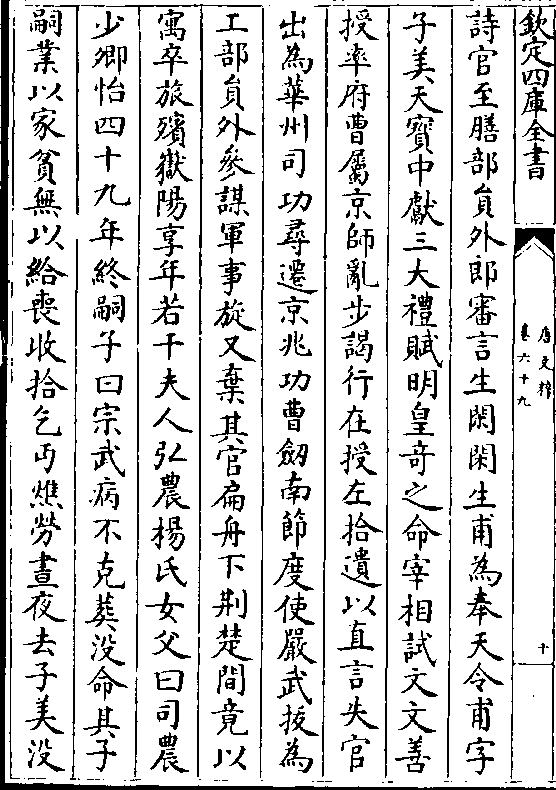 欽定四庫全書
唐文粹
卷六十九
十
詩官至膳部員外郎審言生閑閑生甫為奉天令甫字
子美天寶中獻三大禮賦明皇竒之命宰相試文文善
授率府曹屬京師亂步謁行在授左拾遺以直言失官
出為華州司功尋遷京兆功曹劒南節度使嚴武拔為
工部員外參謀軍事旋又棄其官扁舟下荆楚間竟以
寓卒旅殯嶽陽享年若干夫人弘農楊氏女父曰司農
少卿怡四十九年終嗣子曰宗武病不克葬没命其子
嗣業以家貧無以給喪收拾乞丐燋勞晝夜去子美没